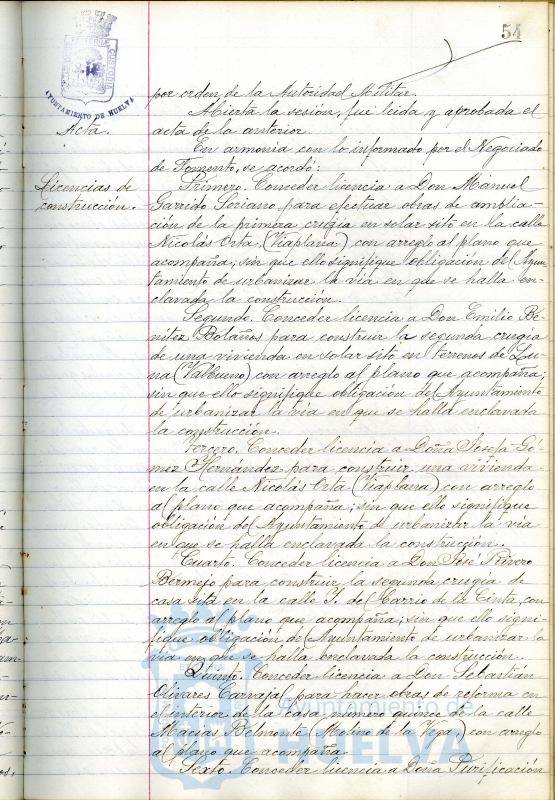 54
AYUNTAMIENTO DE HUELVA
por orden de la Autoridad Militar.
Abierta la sesión, fué leida y aprobada el
Acta.
acta de la anterior.
En armonia con lo informado por el Negociado
de Fomento, se acordó:
Licencias de
construcción.
Primero. Conceder licencia a Don Manuel
Garrido Soriano para efectuar obras de amplia-
ción de la primera crugia en solar sito en la calle
Nicolás Orta (Viaplana) con arreglo al plano que
acompaña; sin que ello signifique obligación del Ayun
tamiento de urbanizar la via en que se halla en-
clavada la construcción.
Segundo. Conceder licencia a Don Emilio Be-
nitez Bolaños para construir la segunda crugia
de una vivienda en solar sito en terrenos de Lu-
na (Valbueno) con arreglo al plano que acompaña;
sin que ello signifique obligación del Ayuntamiento
de urbanizar la via en que se halla enclavada
la construcción.
Tercero. Conceder licencia a Doña Josefa Gó-
mez Hernández para construir una vivienda
en la calle Nicolás Orta (Viaplana) con arreglo
al plano que acompaña; sin que ello signifique
obligación del Ayuntamiento de urbanizar la via
en que se halla enclavada la construcción.
Cuarto. Conceder licencia a Don José Rivero
Bermejo para construir la segunda crugia de
casa sita en la calle J. del Barrio de la Cinta, con
arreglo al plano que acompaña; sin que ello signi-
fique obligación del Ayuntamiento de urbanizar la
via en que se halla enclavada la construcción.
Quinto. Conceder licencia a Don Sebastián
Olivares Carvajal para hacer obras de reforma en
el interior de la casa número quince de la calle
Macias Belmonte (Molino de la Vega) con arreglo
al plano que acompaña.
Sexto. Conceder licencia a Doña Purificación
Ayuntamiento de
HUELVA